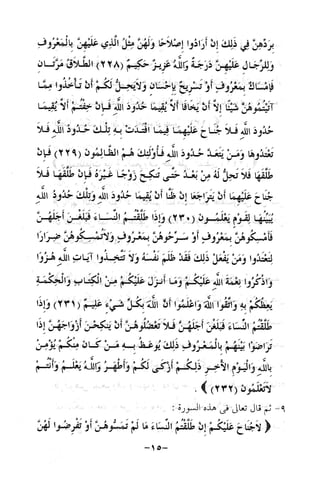 بِرَدِّهِنَّ فِي ذَلِكَ إِنْ أَرَادُوا إِصْلَاحًا وَلَهُنَّ مِثْلُ الَّذِي عَلَيْهِنَّ بِالْمَعْرُوفِ
وَلِلرِّجَالِ عَلَيْهِنَّ دَرَجَةٌ وَاللَّهُ عَزِيزٌ حَكِيمٌ (٢٢٨) الطَّلَاقُ مَرَّتَانِ
فَإِمْسَاكٌ بِمَعْرُوفٍ أَوْ تَسْرِيحٌ بِإِحْسَانٍ وَلَايَحِلُّ لَكُمْ أَنْ تَأْخُذُوا مِمَّا
آتَيْتُمُوهُنَّ شَيْئًا إِلَّا أَنْ يَخَافَا أَلَّا يُقِيمَا حُدُودَ اللَّهِ فَإِنْ خِفْتُمْ أَلَّا يُقِيمَا
حُدُودَ اللَّهِ فَلَا جُنَاحَ عَلَيْهِمَا فِيمَا افْتَدَتْ بِهِ تِلْكَ حُدُودُ اللَّهِ فَلَا
تَعْتَدُوهَا وَمَنْ يَتَعَدَّ حُدُودَ اللَّهِ فَأُولَئِكَ هُمُ الظَّالِمُونَ (٢٢٩) فَإِنْ
طَلَّقَهَا فَلَا تَحِلُّ لَهُ مِنْ بَعْدُ حَتَّى تَنكِحَ زَوْجًا غَيْرَهُ فَإِنْ طَلَّقَهَا فَلَا
جُنَاحَ عَلَيْهِمَا أَنْ يَتَرَاجَعَا إِنْ ظَنَّا أَنْ يُقِيمَا حُدُودَ اللَّهِ وَتِلْكَ حُدُودُ اللَّهِ
يُبَيِّنُهَا لِقَوْمٍ يَعْلَمُونَ (٢٣٠) وَإِذَا طَلَّقْتُمُ النِّسَاءَ فَبَلَغْنَ أَجَلَهُنَّ
فَأَمْسِكُوهُنَّ بِمَعْرُوفٍ أَوْ سَرِّحُوهُنَّ بِمَعْرُوفٍ وَلَاتُمْسِكُوهُنَّ ضِرَارًا
لِتَعْتَدُوا وَمَنْ يَفْعَلْ ذَلِكَ فَقَدْ ظَلَمَ نَفْسَهُ وَلَا تَتَّخِذُوا آيَاتِ اللَّهِ هُزُوًا
وَاذْكُرُوا نِعْمَةَ اللَّهِ عَلَيْكُمْ وَمَا أَنزَلَ عَلَيْكُمْ مِنَ الْكِتَابِ وَالْحِكْمَةِ
يَعِظُكُمْ بِهِ وَاتَّقُوا اللَّهَ وَاعْلَمُوا أَنَّ اللَّهَ بِكُلِّ شَيْءٍ عَلِيمٌ (٢٣١) وَإِذَا
طَلَّقْتُمُ النِّسَاءَ فَبَلَغْنَ أَجَلَهُنَّ فَلَا تَعْضُلُوهُنَّ أَنْ يَنكِحْنَ أَزْوَاجَهُنَّ إِذَا
تَرَاضَوْا بَيْنَهُمْ بِالْمَعْرُوفِ ذَلِكَ يُوعَظُ بِهِ مَنْ كَانَ مِنْكُمْ يُؤْمِنُ
بِاللَّهِ وَالْيَوْمِ الْآخِرِ ذَلِكُمْ أَزْكَى لَكُمْ وَأَطْهَرُ وَاللَّهُ يَعْلَمُ وَأَنْتُمْ
لَاتَعْلَمُونَ (٢٣٢) ﴾ .
٩- ثم قال تعالى فى هذه السورة :
﴿ لَاجُنَاحَ عَلَيْكُمْ إِنْ طَلَّقْتُمُ النِّسَاءَ مَا لَمْ تَمَسُّوهُنَّ أَوْ تَفْرِضُوا لَهُنَّ
-١٥-